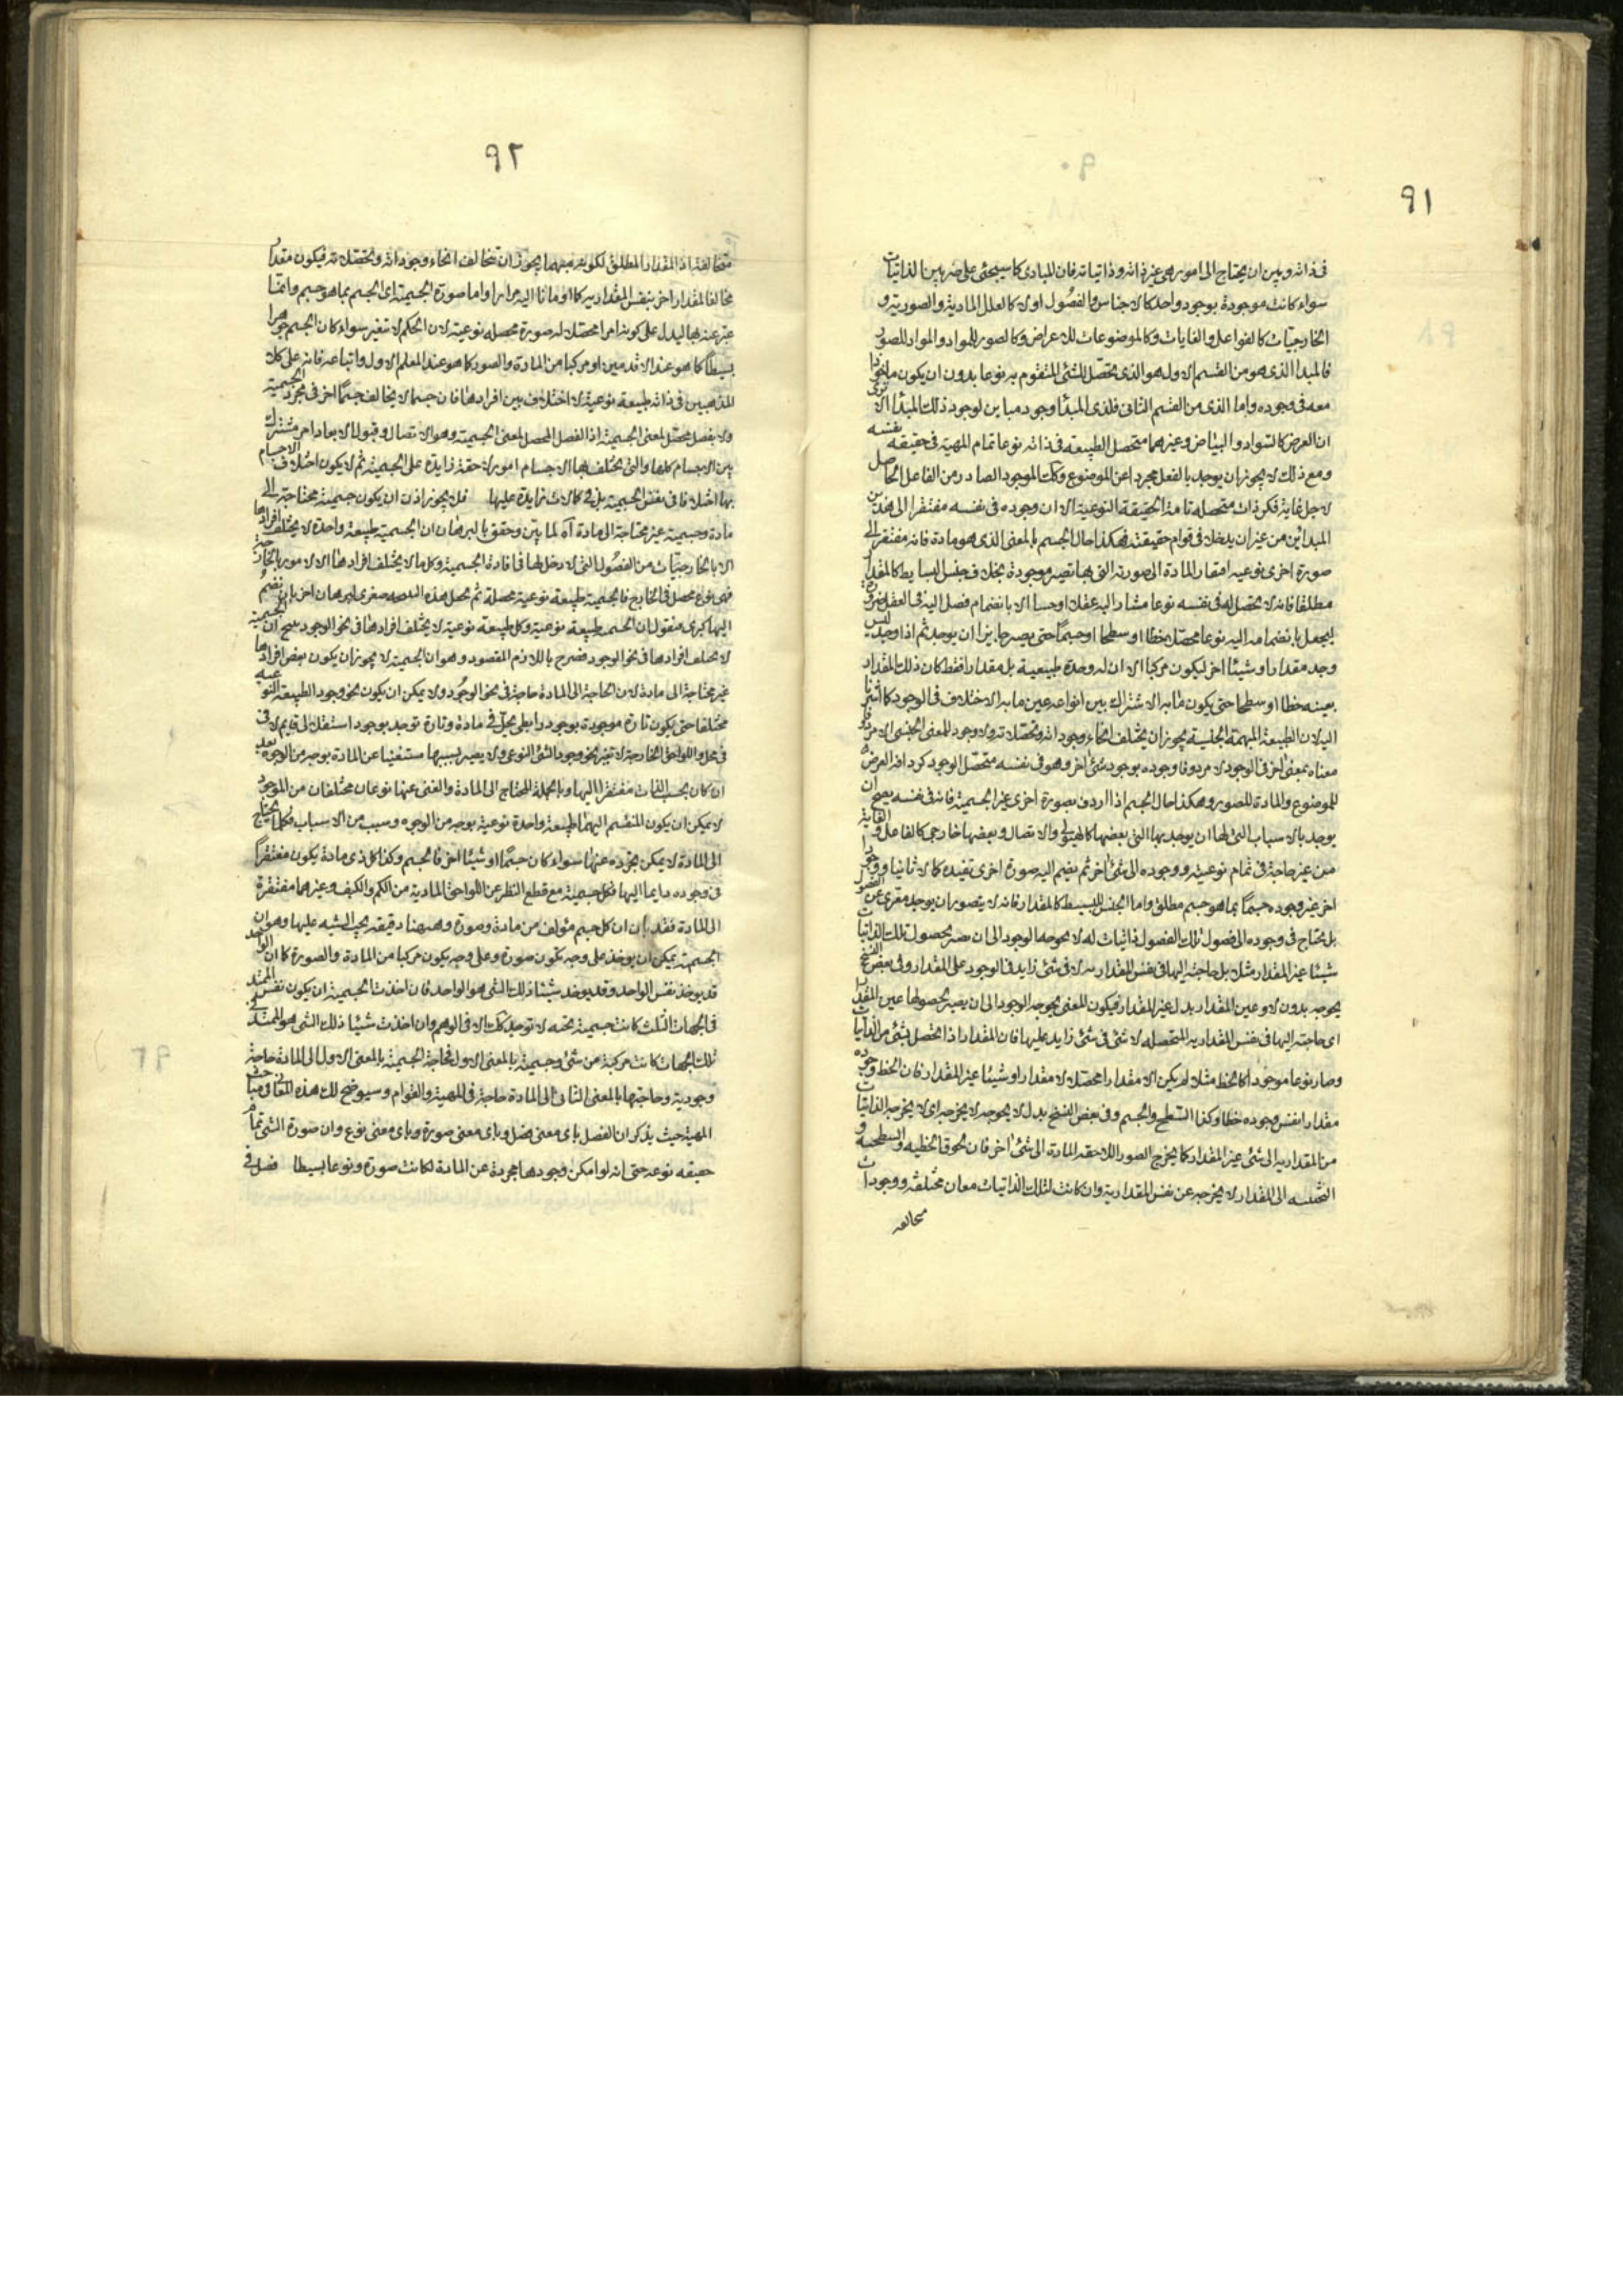 ٩١
فى ذاته وبين ان يحتاج الى امور هى غير ذاته وذاتياته فان المبادى كما سيجئ على ضربين الذاتيات
سواء كانت موجودة بوجود واحد كالاجناس والفصول اولا كالعلل المادية والصورية و
الخارجيات كالفواعل والغايات وكالموضوعات للاعراض وكالصور للمواد والمواد للصور
فالمبدا الذى هو من القسم الاول هو الذى يحصل للشئ المتقوم به نوعا بدون ان يكون ماخوذا
معه فى وجوده واما الذى من القسم الثانى فلذى المبدأ وجود مباين لوجود ذلك المبدأ الا ترى
ان العرض كالسواد والبياض وغيرهما متحصل الطبيعه فى ذاته نوعا تمام المهية فى حقيقه نفسه
ومع ذلك لا يجوز ان يوجد بالفعل مجردا عن الموضوع وكك الموجود الصادر من الفاعل الحاصل
لاجل غاية فكر ذات متحصله تامة الحقيقة النوعية الا ان وجوده فى نفسه مفتقر الى هذين
المبدائين من غير ان يدخلا فى قوام حقيقته فهكذا حال الجسم بالمعنى الذى هو مادة فانه مفتقر الى
صورة اخرى نوعيه افتقار المادة الى صورته التى بها تصير موجودة بخلاف جنس البسايط كالمقدار
مطلقا فانه لا تحصل له فى نفسه نوعا مشارا اليه عقلا او حسا الا بانضمام فصل اليه فى العقل ضرورة
ليجعل بانضمامه اليه نوعا محصلا خطا او سطحا او جسما حتى يصير جايزا ان يوجد ثم اذا وجد ليس
وجد مقدارا وشيئا اخر ليكون مركبا الا ان له وحدة طبيعية بل مقدارا فقط كان ذلك المقدار
بعينه خطا او سطحا حتى يكون ما به الاشتراك بين انواعه عين ما به الاختلاف فى الوجود كما اشرنا
اليه لان الطبيعة المبهمة الجنسية يجوز ان يختلف انحاء وجوداته وتحصلاته ولا وجود للمعنى الجنسى الا مردوفا
معناه بمعنى اخر فى الوجود لا مردوفا وجوده بوجود شئ اخر وهو فى نفسه متحصل الوجود كردافه العرض
للموضوع والمادة للصور وهكذا حال الجسم اذا اردف بصورة اخرى غير الجسمية فانه فى نفسه يصح ان
يوجد بالاسباب التى لها ان يوجد بها التى بعضها كالهيولى والاتصال وبعضها خارجى كالفاعل والغاية
من غير حاجة فى تمام نوعيته ووجوده الى شئ اخر ثم يضم اليه صورة اخرى تفيده كمالا ثانيا ووجودا
اخر غير وجوده جسما بما هو جسم مطلق واما الجنس للبسيط كالمقدار فانه لا يتصور ان يوجد معرى عن الفصول
بل يحتاج فى وجوده الى فصول تلك الفصول ذاتيات له لا يحوجه الوجود الى ان يصير بحصول تلك الذاتيات
شيئا غير المقدار مثلا بل حاجته اليها فى نفس المقداريه لا فى شئ زايد فى الوجود على المقدار وفى بعض النسخ
يحوجه بدون لا وعين المقدار بدل غير المقدار فيكون المعنى يحوجه الوجود الى ان يصير بحصولها عين المقدار
اى حاجته اليها فى نفس المقداريه المتحصله لا شئ فى شئ زايد عليها فان المقدار اذا تحصل بشئ من الذاتيات
وصار نوعا موجودا كالخط مثلا لم يكن الا مقدارا محصلا لا مقدارا وشيئا غير المقدار فان الخط وجوده
مقدارا نفس وجوده خطا وكذا السطح والجسم وفى بعض النسخ بدل لا يحوجه لا يخرجه اى لا يخرجه الذاتيات
من المقداريه الى شئ غير المقدار كما يخرج الصور اللاحقه المادة الى شئ اخر فان لحوق الخطيه والسطحيه و
الى المقدار لا يخرجه عن نفس المقدارية وان كانت لتلك الذاتيات معان مختلفة ووجودات
متخالفه
٩٢
متخالفة اذ المقدار المطلق لكونه مبهما يجوز ان تتخالف انحاء وجوداته وتحصلاته فيكون مقدار
مخالفا لمقدار اخر بنفس المقداريه كما اومأنا اليه مرارا واما صورة الجسمية اى الجسم بما هو جسم وانما
عبر عنه بها ليدل على كونه امرا محصلا له صورة محصله نوعية لان الحكم لا تتغير سواء كان الجسم جوهرا
بسيطا كما هو عند الاقدمين او مركبا من المادة والصورة كما هو عند المعلم الاول واتباعه فانه على كلا
المذهبين فى ذاته طبيعة نوعية لا اختلاف بين افرادها فان جسما لا يخالف جسما اخر فى مجرد الجسمية
ولا بفصل محصل لمعنى الجسمية اذ الفصل المحصل لمعنى الجسمية وهو الاتصال وقبول الابعاد امر مشترك
بين الاجسام كلها والتى يختلف بها الاجسام امور لاحقة زايدة على الجسمية ثم لا يكون اختلاف الاجسام
بها اختلافا فى نفس الجسمية بل فى كمالات زايدة عليها فلا يجوز اذن ان يكون جسمية محتاجة الى
مادة وجسمية غير محتاجة الى مادة آه لما بين وحقق بالبرهان ان الجسمية طبيعة واحدة لا يختلف افرادها
الا بالخارجيات من الفصول التى لا دخل لها فى افادة الجسمية وكل ما لا يختلف افرادها الا لامور بالخارج
فهى نوع محصل فى الخارج فالجسمية طبيعة نوعية محصلة ثم تجعل هذه صغرى لبرهان اخر بان ينضم
اليها كبرى فنقول ان الجسمية طبيعة نوعية وكل طبيعة نوعية لا يختلف افرادها فى نحو الوجود ينتج ان الجسمية
لا يختلف افرادها فى نحو الوجود فصرح باللازم المقصود وهو ان الجسمية لا يجوز ان يكون بعض افرادها
غير محتاجة الى مادة لان الحاجة الى المادة حاجة فى نحو الوجود ولا يمكن ان يكون نحو وجود الطبيعة النوعيه
مختلفا حتى يكون تارة موجودة بوجود رابطى يحل فى مادة وتارة توجد بوجود استقلالى قايم لا فى
فى محل واللواحق الخارجة لا تغير نحو وجود الشئ النوعى ولا يصير بسببها مستغنيا عن المادة بوجه من الوجوه بعد
ان كان بحسب الذات مفتقرا اليها وبالجملة المحتاج الى المادة والغنى عنها نوعان مختلفان من الموجود
لا يمكن ان يكون المنقسم اليهما طبيعة واحدة نوعية بوجه من الوجوه وسبب من الاسباب فكلما يحتاج
الى المادة لا يمكن تجرده عنها سواء كان جسما او شيئا اخر فالجسم وكذا كل ذى مادة يكون مفتقرا
فى وجوده دايما اليها فكل جسمية مع قطع النظر عن اللواحق المادية من الكم والكيف وغيرهما مفتقرة
الى المادة فقد بان ان كل جسم مؤلف من مادة وصورة وههنا دقيقه يجب التنبيه عليها وهو ان
الجسمية يمكن ان يوخذ على وجه تكون صورة وعلى وجه يكون مركبا من المادة والصورة كما ان الواحد
قد يوخذ نفس الواحد وقد يوخذ شيئا ذلك الشئ هو الواحد فان اخذت الجسمية ان يكون نفس الممتد
فى الجهات الثلث كانت جسمية بحته لا توجد كك الا فى الوهم وان اخذت شيئا ذلك الشئ هو الممتد فى
تلك الجهات كانت مركبة من شئ وجسمية بالمعنى الاول فحاجة الجسمية بالمعنى الاول الى المادة حاجة
وجودية وحاجتها بالمعنى الثانى الى المادة حاجة فى المهية والقوام وسيوضح لك هذه المعانى فى مباحث
المهية حيث يذكر ان الفصل باى معنى فصل وباى معنى صورة وباى معنى نوع وان صورة الشئ تمام
حقيقه نوعه حتى انه لو امكن وجودها مجردة عن المادة لكانت صورة ونوعا بسيطا فصل فى